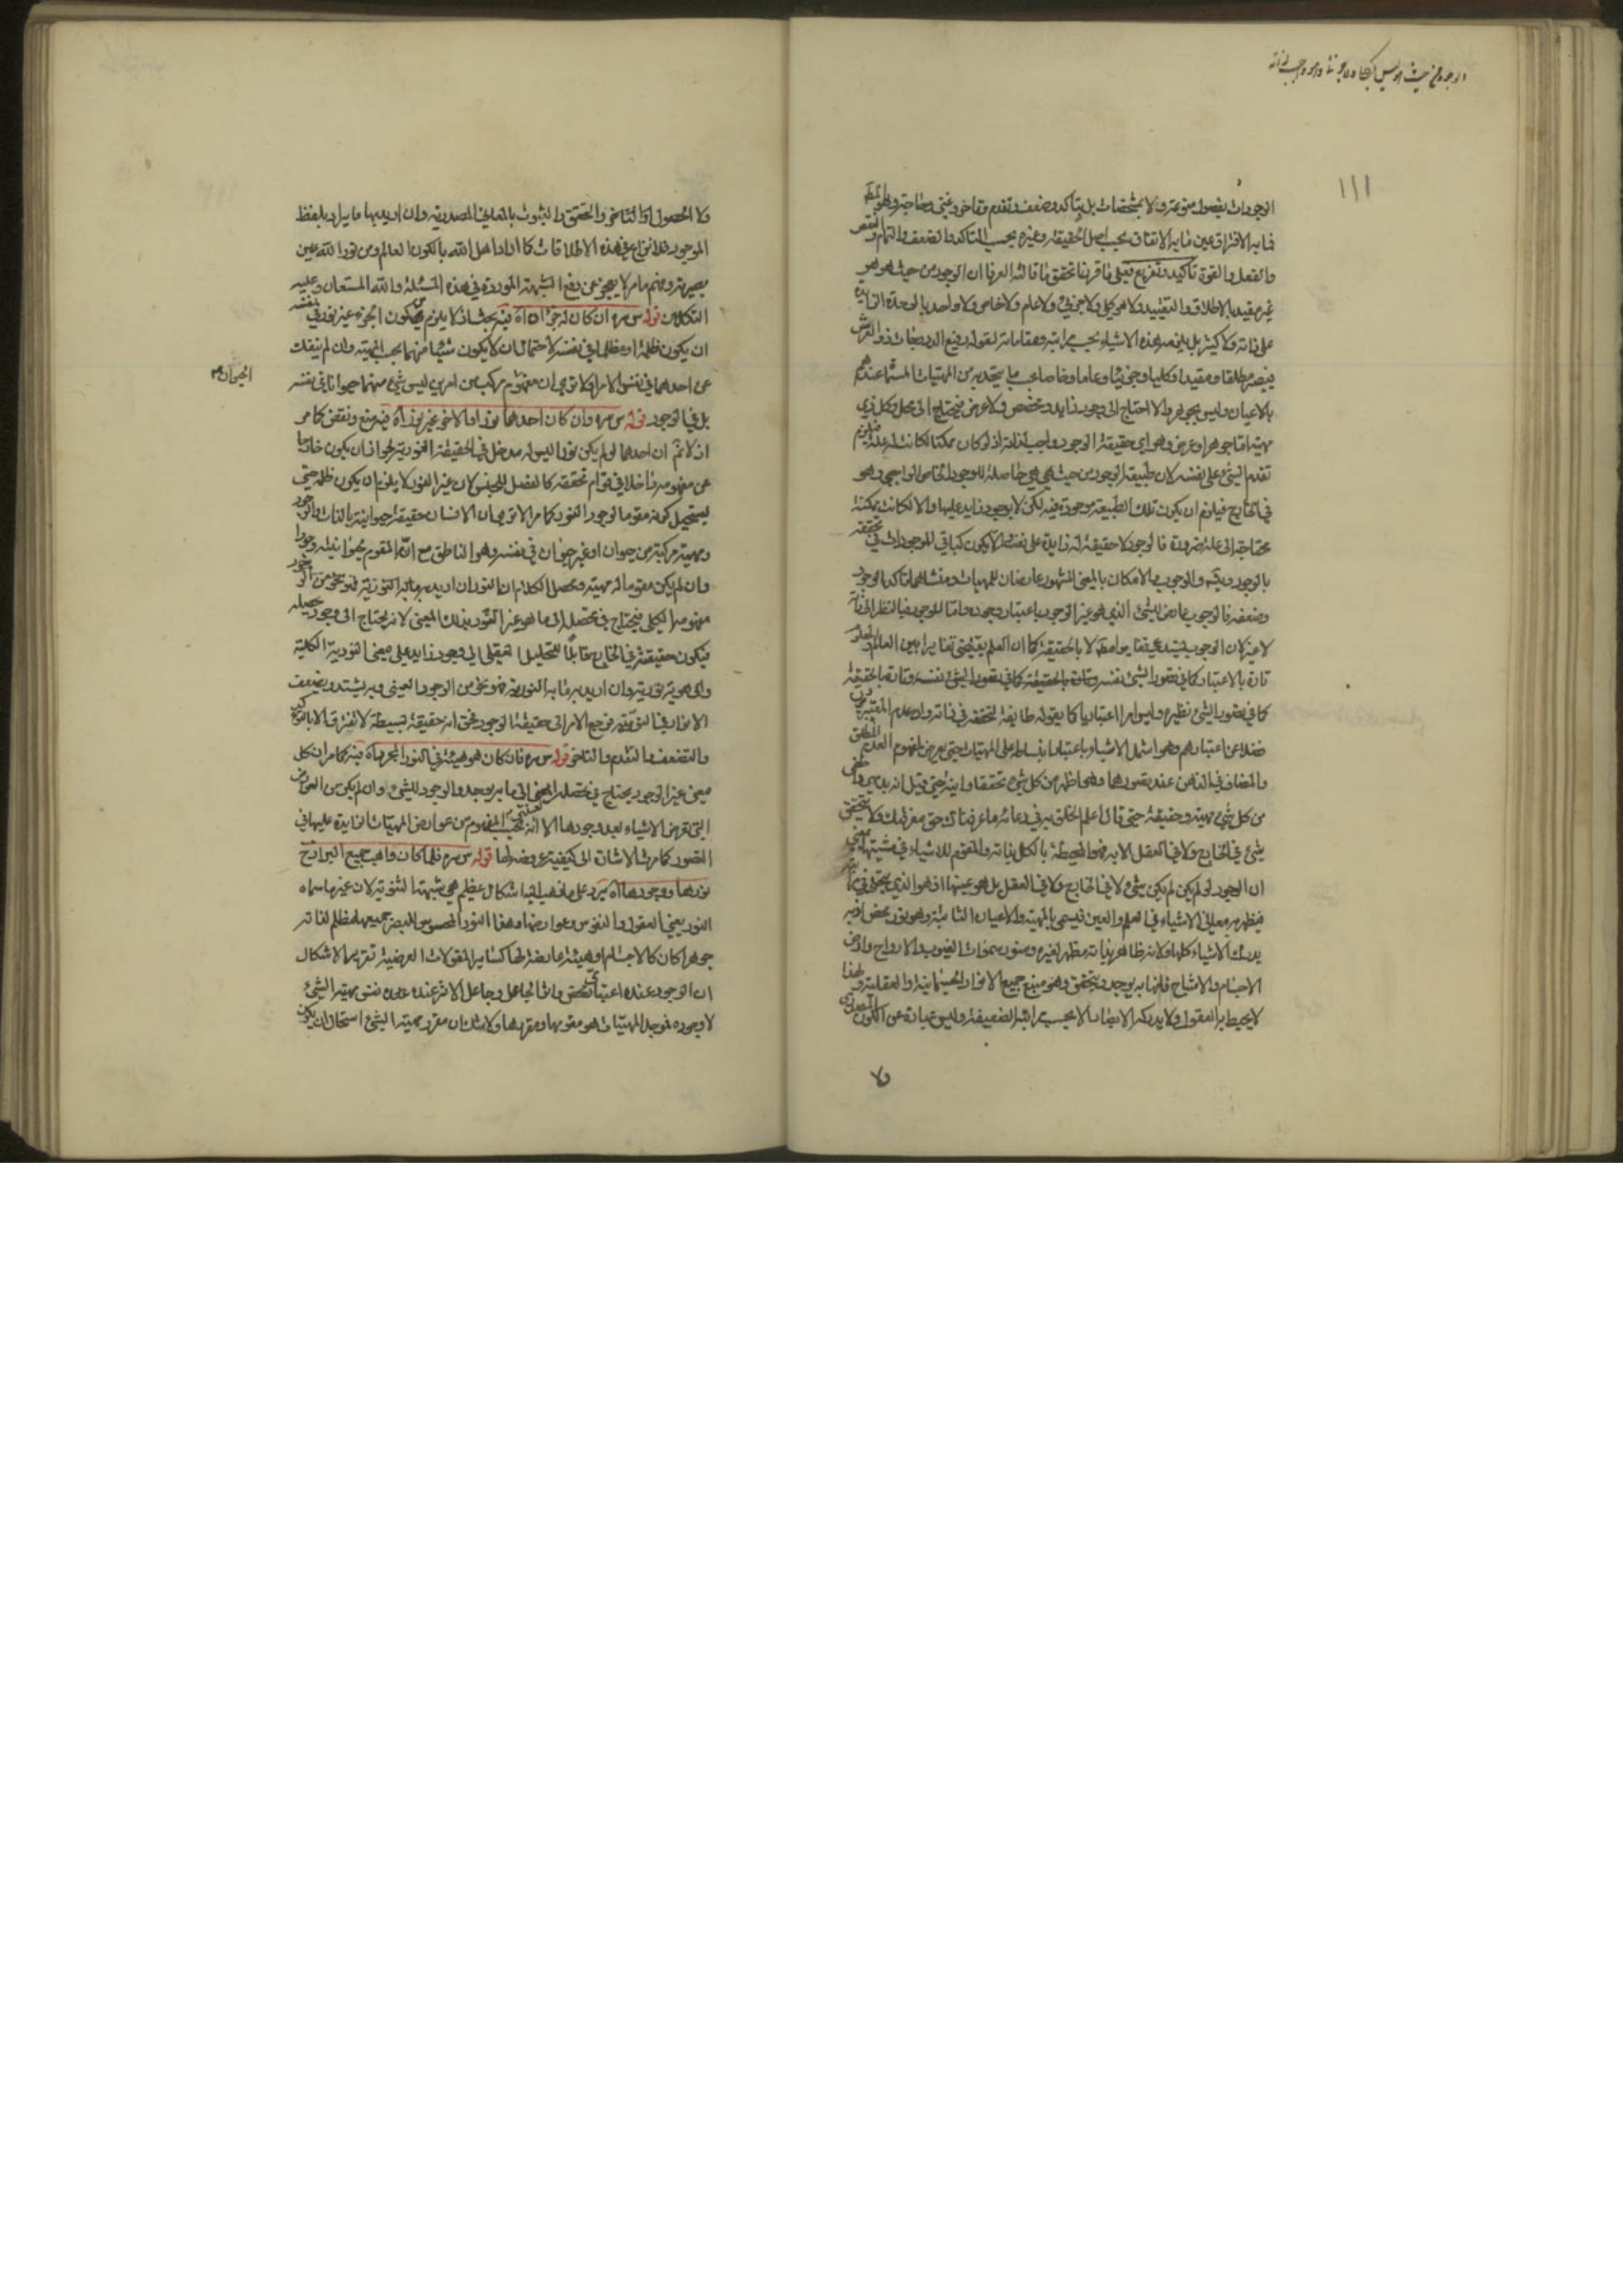 الوجود من حيث هو ليس
١١١
الوجودات بفصول منوعة ولا بمشخصات بل بتأكد وضعف وتقدم وتأخر وغنى وحاجة
فما به الافتراق عين ما به الاتفاق بحسب اصل الحقيقة وغيره بحسب التأكد والضعف والتمام والنقص
والفعل والقوة تأكيد وتفريع فعلى ما قررنا تحقق ما قالته العرفا ان الوجود من حيث هو هو
غير مقيد بالاطلاق والتقييد ولا هو كلي ولا جزئي ولا عام ولا خاص ولا واحد بالوحدة الزايدة
على ذاته ولا كثير بل يلزمه هذه الاشياء بحسب مراتبه ومقاماته لقوله رفيع الدرجات ذو العرش
فيصير مطلقا ومقيدا وكليا وجزئيا وعاما وخاصا بحسب ما يتحد به من المهيات المسماة عندهم
بالاعيان وليس بجوهر والا احتاج الى وجود زايد ومخصص ولا عرض فيحتاج الى محل وكل ذي
مهية اما جوهر او عرض وهو اي حقيقة الوجود واجب لذاته اذ لو كان ممكنا لكانت له علة فيلزم
تقدم الشيء على نفسه لان طبيعة الوجود من حيث هي هي حاصلة للوجود الخاص الواجبي وهو
في الخارج فيلزم ان يكون تلك الطبيعة موجودة فيه لكن لا بوجود زايد عليها والا لكانت ممكنة
محتاجة الى علة ضرورة فالوجود لا حقيقة له زايدة على نفسه والا يكون كباقي الموجودات في تحققه
بالوجود ويتسلسل والوجوب والامكان بالمعنى المشهور عارضان للمهيات ومنشاهما تأكد الوجود
وضعفه فالوجوب عارض للشيء الذي هو غير الوجود باعتبار وجوده واما للوجود فبالنظر الى ذاته
لا غير لان الوجوب يستدعي تغايرا مطلقا لا بالحقيقة كما ان العلم يقتضي تغايرا بين العالم والمعلوم
تارة بالاعتبار كما في تصور الشيء نفسه وتارة بالحقيقة
كما في تصور الشيء نظيره وليس امرا اعتباريا كما يقوله طايفة لتحققه في ذاته وان عدم المعتبرين
فضلا عن اعتبارهم وهو اشمل الاشياء باعتبار انبساطه على المهيات حتى يعرض لمفهوم العدم المطلق
والمضاف في الذهن عند تصورهما وهو اظهر من كل شيء تحققا وانية حتى قيل انه بديهي واخفى
من كل شيء مهية وحقيقة حتى قال اعلم الخلق به في دعائه ما عرفناك حق معرفتك ولا يتحقق
شيء في الخارج ولا في العقل الا به فهو المحيط بالكل بذاته والمقوم للاشياء في شيئيتها
ان الوجود لو لم يكن لم يكن شيء لا في الخارج ولا في العقل بل هو عينها اذ هو الذي يتجلى في مراتبه
فيظهر بمعاني الاشياء في العلم والعين فيسمى بالمهية والاعيان الثابتة وهو نور محض اذ به
يدرك الاشياء كلها ولانه ظاهر بذاته مظهر لغيره ومنور سموات الغيوب والارواح وارض
الاجسام والاشباح فانها به يوجد ويتحقق وهو منبع جميع الانوار الجسمانية والعقلية ولهذا
لا يحيط به العقول ولا يدركه الابصار الا بحسب مراتبه الضعيفة وليس عبارة عن الكون المصدري
ولا
ولا الحصول والتأخر والتحقق والثبوت بالمعاني المصدرية وان اريد بها ما يراد بلفظ
الوجود فلا نزاع في هذه الاطلاقات كما اراد اهل الله بالكون العالم ومن نور الله عين
بصيرته وفهم ما مر لا يعجز عن دفع الشبهة الموردة في هذه المسئلة والله المستعان وعليه
التكلان قوله س سره ان كان له جزآن اه فيه بحث اذ لا يلزم من كون الجزء غير نور في نفسه
ان يكون ظلمة او مظلما في نفسه لاحتمال ان لا يكون شيئا منهما بحسب المهية وان لم ينفك
عن احدهما في نفس الامر الا ترى ان مفهوم مركب من امرين ليس شيء منهما حيوانا في نفسه
الحيوان
بل في الوجود قوله س سره وان كان احدهما نورا والاخر غير نور اه فيه منع ونقض كما مر
اذ لا نم ان احدهما لو لم يكن نورا ليس له مدخل في الحقيقة النورية لجواز ان يكون خارجا
عن مفهومه داخلا في قوام تحققه كالفصل للجنس لان غير النور لا يلزم ان يكون ظلمة حتى
يستحيل كونه مقوما لوجود النور كما مر الا ترى ان الانسان حقيقة حيوانية بالذات والوجود
ومهية مركبة من حيوان او غير حيوان في نفسه وهو الناطق مع انه المقوم لحيوانيته وجودا
وان لم يكن مقوما له مهية ومحصل الكلام ان النور ان اريد به ما به النورية فنوع نحو من الوجود
مفهومه الكلي فيحتاج في تحصله الى ما هو غير النور بذلك المعنى لانه يحتاج الى وجود محصله
فيكون حقيقة في الخارج قابلا للتحليل العقلي الى وجود زايد على معنى النورية الكلية
والى هوية نورية وان اريد به ما به النورية فهو نحو من الوجود العيني وبه يشتد ويضعف
الانوار في النورية فرجع الامر الى حقيقة الوجود نحو انه حقيقة بسيطة لا تفترق الا بالتأكد
والتضعف والتقدم والتأخر قوله س سره فان كان هو هيئة في النور المجرد اه فيه كما مر ان كل
معنى غير الوجود يحتاج في تحصله الى ما به يوجد والوجود للشيء وان لم يكن من العوارض
التي تعرض الاشياء بعد وجودها الا انه بحسب المفهوم من عوارض المهيات الزايدة عليها في
التصور كما مرت الاشارة الى كيفية عروضه لها قوله س سره فلما كان واهب جميع البرازخ
نورها ووجودها اه يرد على ما ذهب اليه اشكال عظيم هي شبهة الثنوية لان غير ما سماه
النور يعني العقول والنفوس وعوارضها وهذا النور المحسوس للبصر جميعه مظلم لذاته
جوهرا كان كالاجسام او هيئة عارضة لها كسائر المقولات العرضية تقرير الاشكال
ان الوجود عنده اعتباري محض واثر الجاعل وجاعل الاثر عنده نفس مهية الشيء
لا وجوده فموجد المهيات هو مقومها ومقررها ولا شك ان مقرر مهية الشيء استحال ان يكون